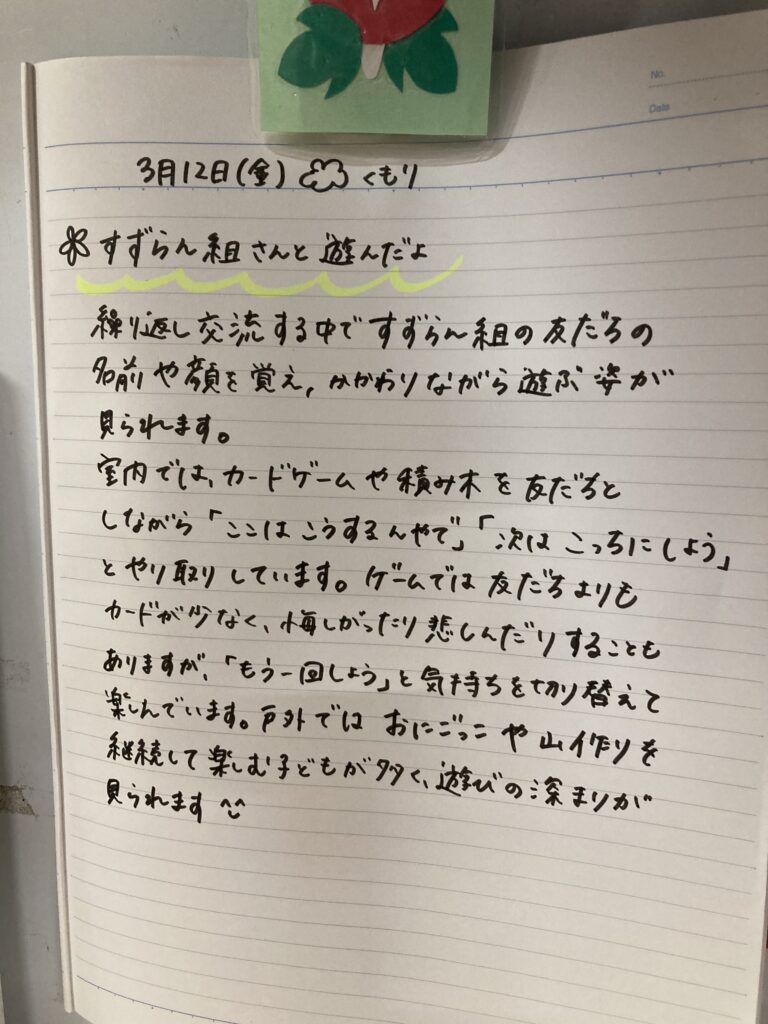 No.
Date
3月12日(金) くもり
すずらん組さんと遊んだよ
繰り返し交流する中ですずらん組の友だちの
名前や顔を覚え,かかわりながら遊ぶ姿が
見られます。
室内では、カードゲームや積み木を友だちと
しながら「ここはこうするんやで」「次はこっちにしよう」
とやり取りしています。ゲームでは友だちよりも
カードが少なく、悔しがったり悲しんだりすることも
ありますが、「もう一回しよう」と気持ちを切り替えて
楽しんでいます。戸外ではおにごっこや山作りを
継続して楽しむ子どもが多く、遊びの深まりが
見られます